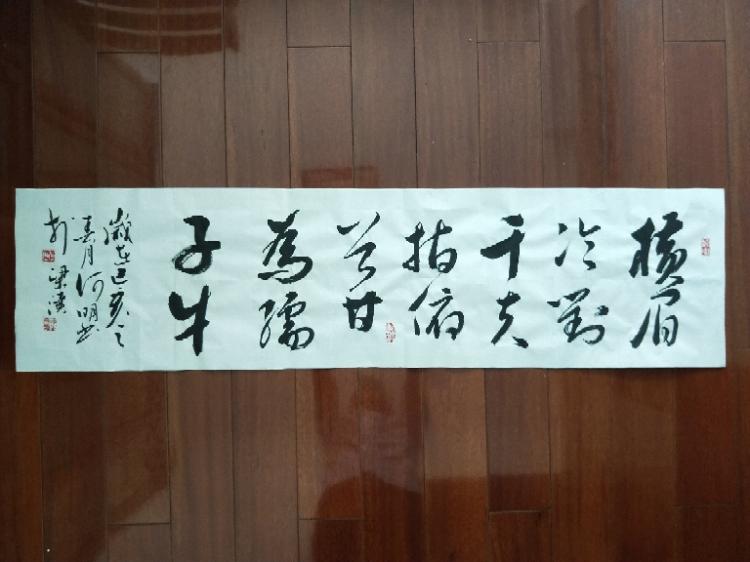 横眉
冷對
千夫
指俯
首甘
為孺
子牛
歲在己亥之
春月何明書
於梁溪